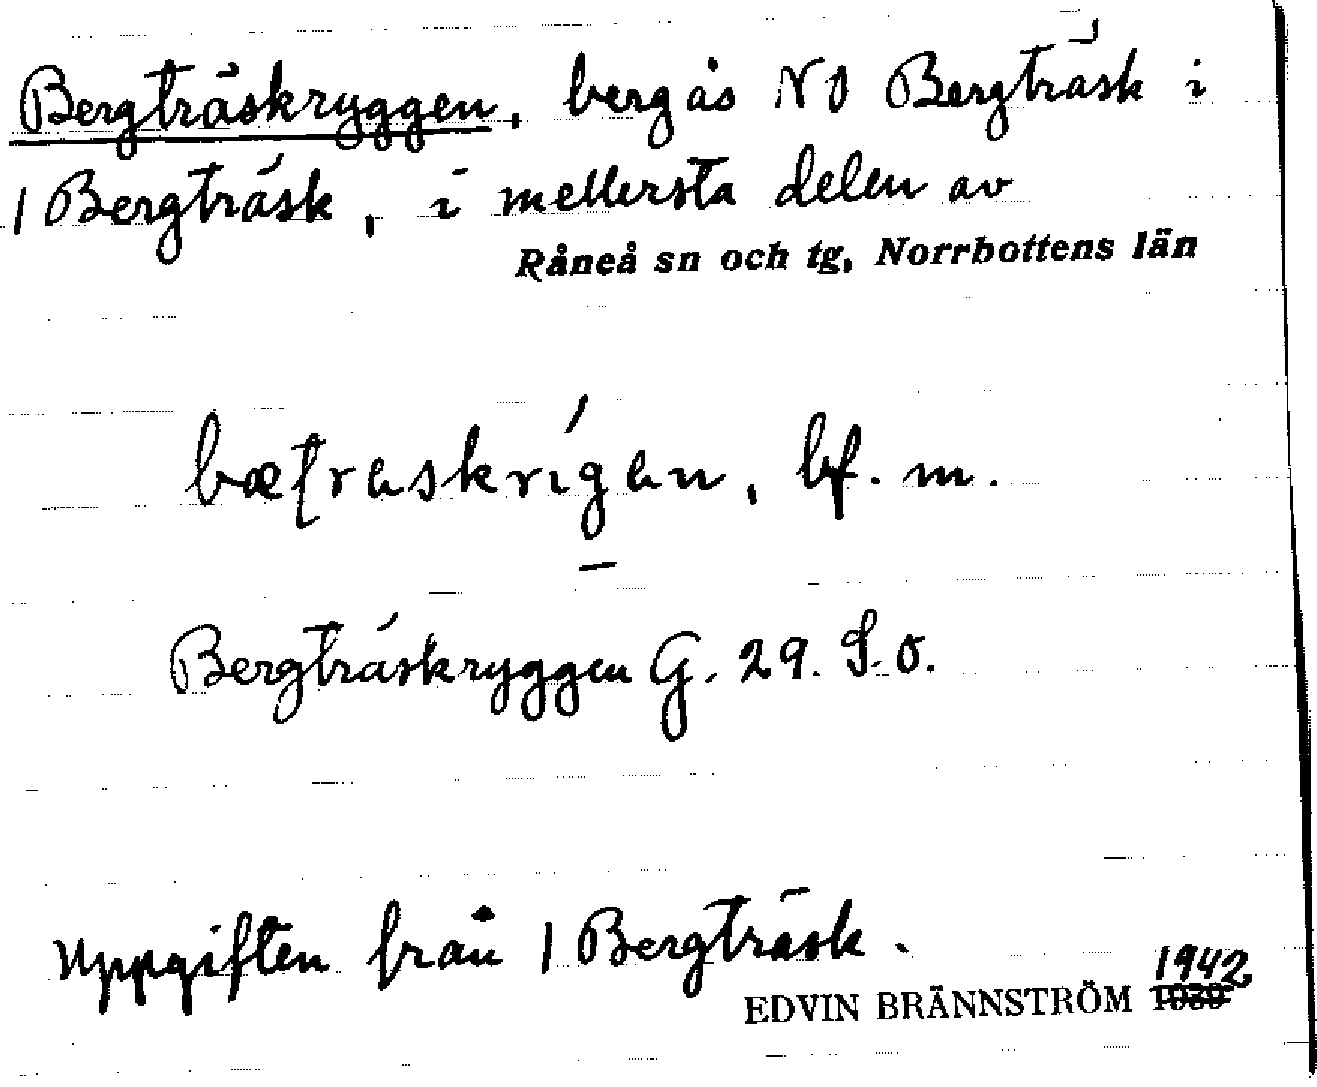 Bergträskryggen, bergås NO Bergträsk i
1 Bergträsk, i mellersta delen av
Råneå sn och tg, Norrbottens län
bf. m.
Bergträskryggen G. 29. S.o.
Uppgiften från 1 Bergträsk.
EDVIN BRÄNNSTRÖM 1942